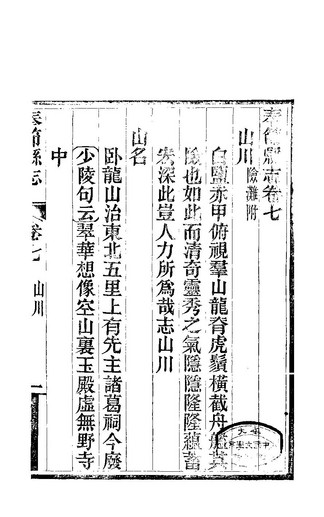 奉節縣志卷七
山川 險灘附
白鹽赤甲俯視羣山龍脊虎鬚橫截舟艦其
險也如此而清奇靈秀之氣隱隱隆隆蘊蓄
宏深此豈人力所爲哉志山川
山名
卧龍山治東北五里上有先主諸葛祠今廢
少陵句云翠華想像空山裏玉殿虛無野寺
中
奉節縣志 卷七 山川 一